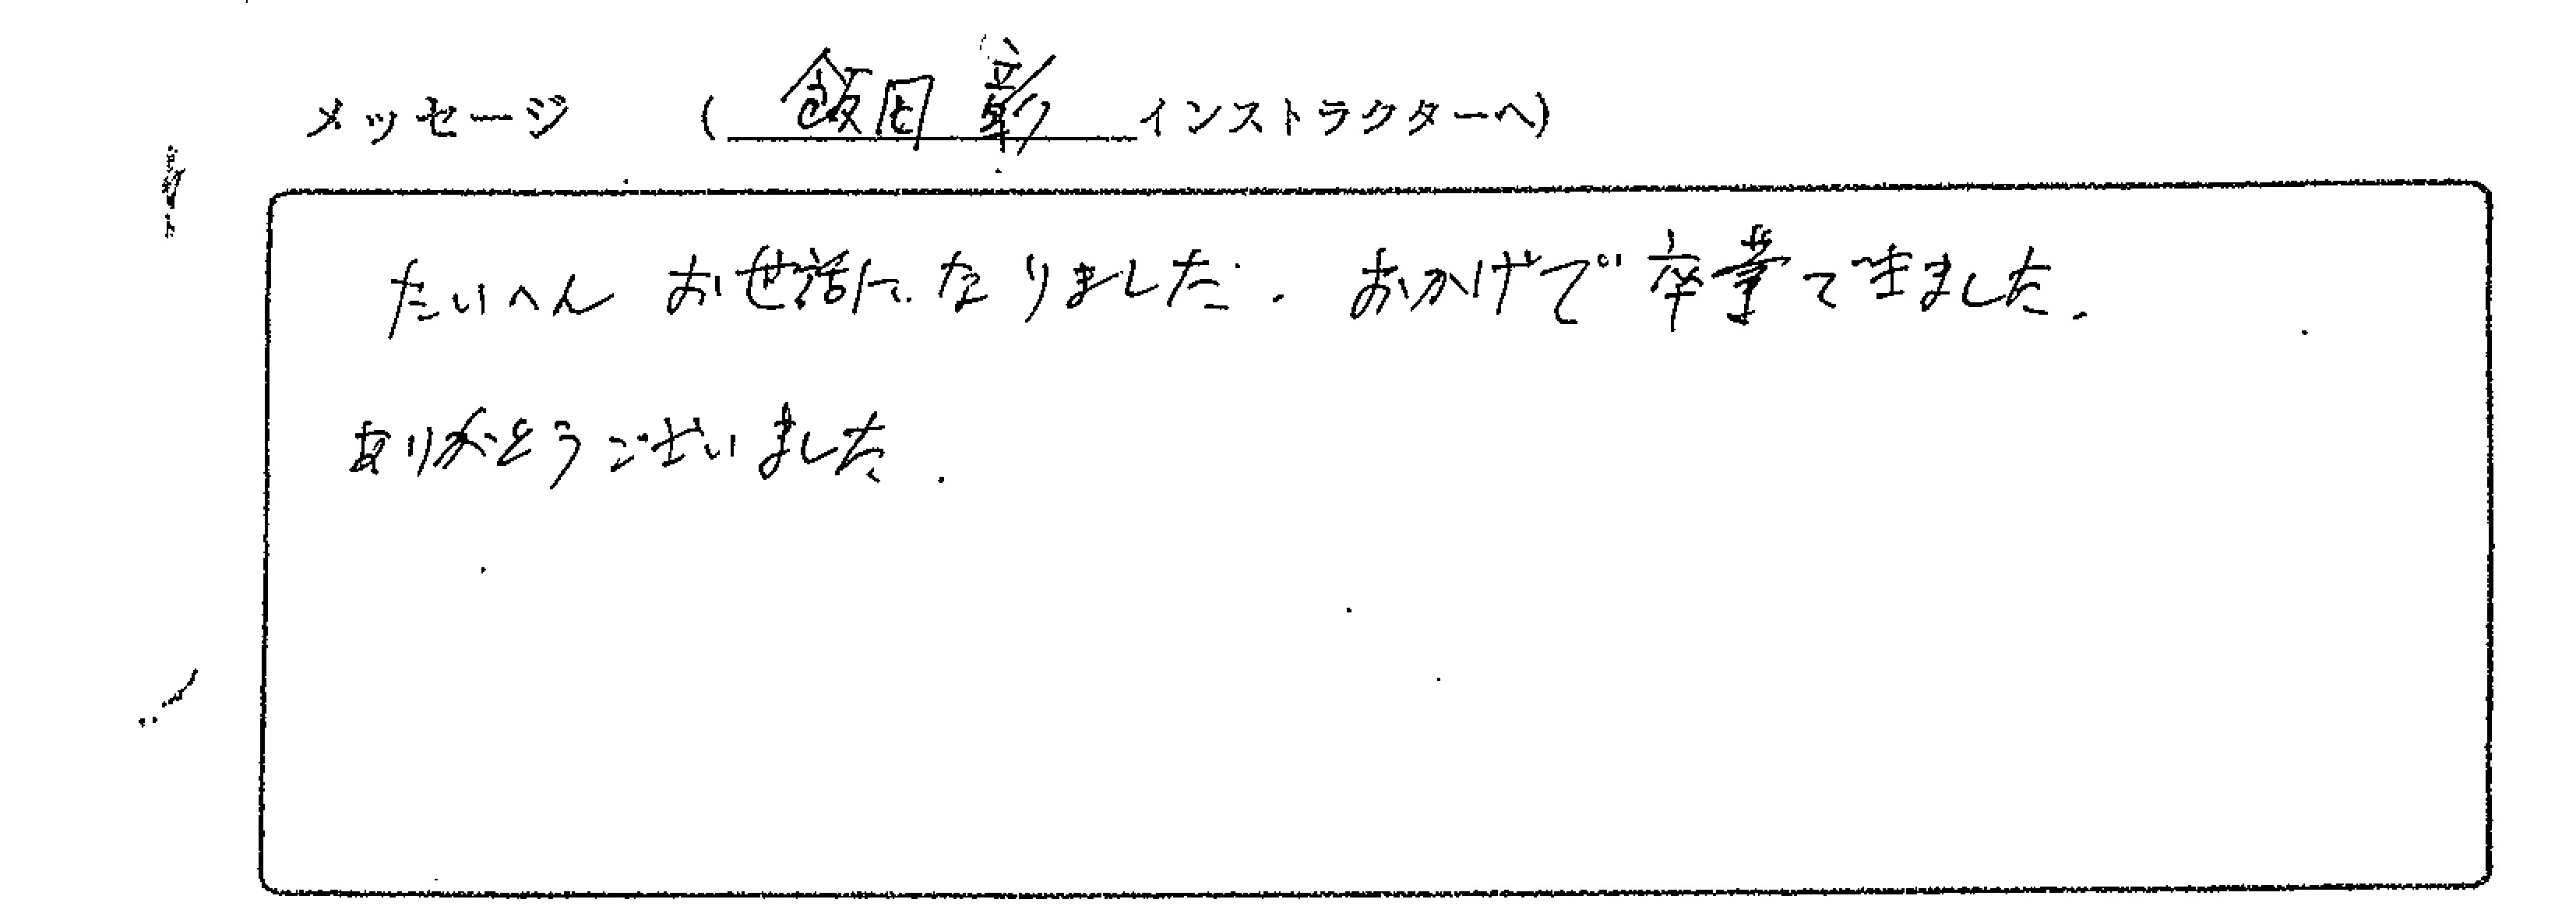 メッセージ （ 飯田 彰 インストラクターへ）
たいへん お世話になりました. おかげで卒業できました.
ありがとうございました.